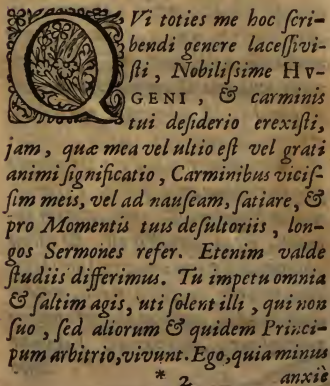 QVi toties me hoc scri-
bendi genere lacessivi-
sti, Nobilissime Hv-
GENI, & carminis
tui desiderio erexisti,
jam, quæ mea vel ultio est vel grati
animi significatio, Carminibus vicis-
sim meis, vel ad nauseam, satiare, &
pro Momentis tuis desultoriis, lon-
gos Sermones refer. Etenim valde
studiis differimus. Tu impetu omnia
& saltim agis, uti solent illi, qui non
suo, sed aliorum & quidem Princi-
pum arbitrio, vivunt. Ego, quia minus
* 2 anxie